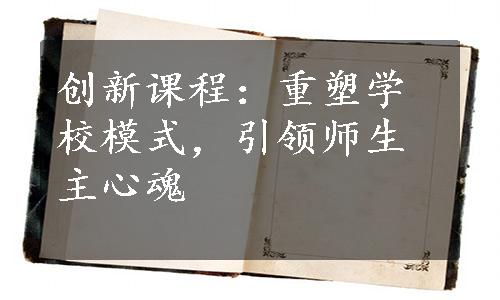 创新课程：重塑学
校模式，引领师生
主心魂